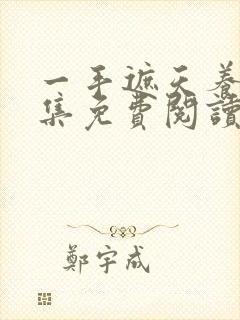 一手遮天養
集免費閱讀
鄭宇成